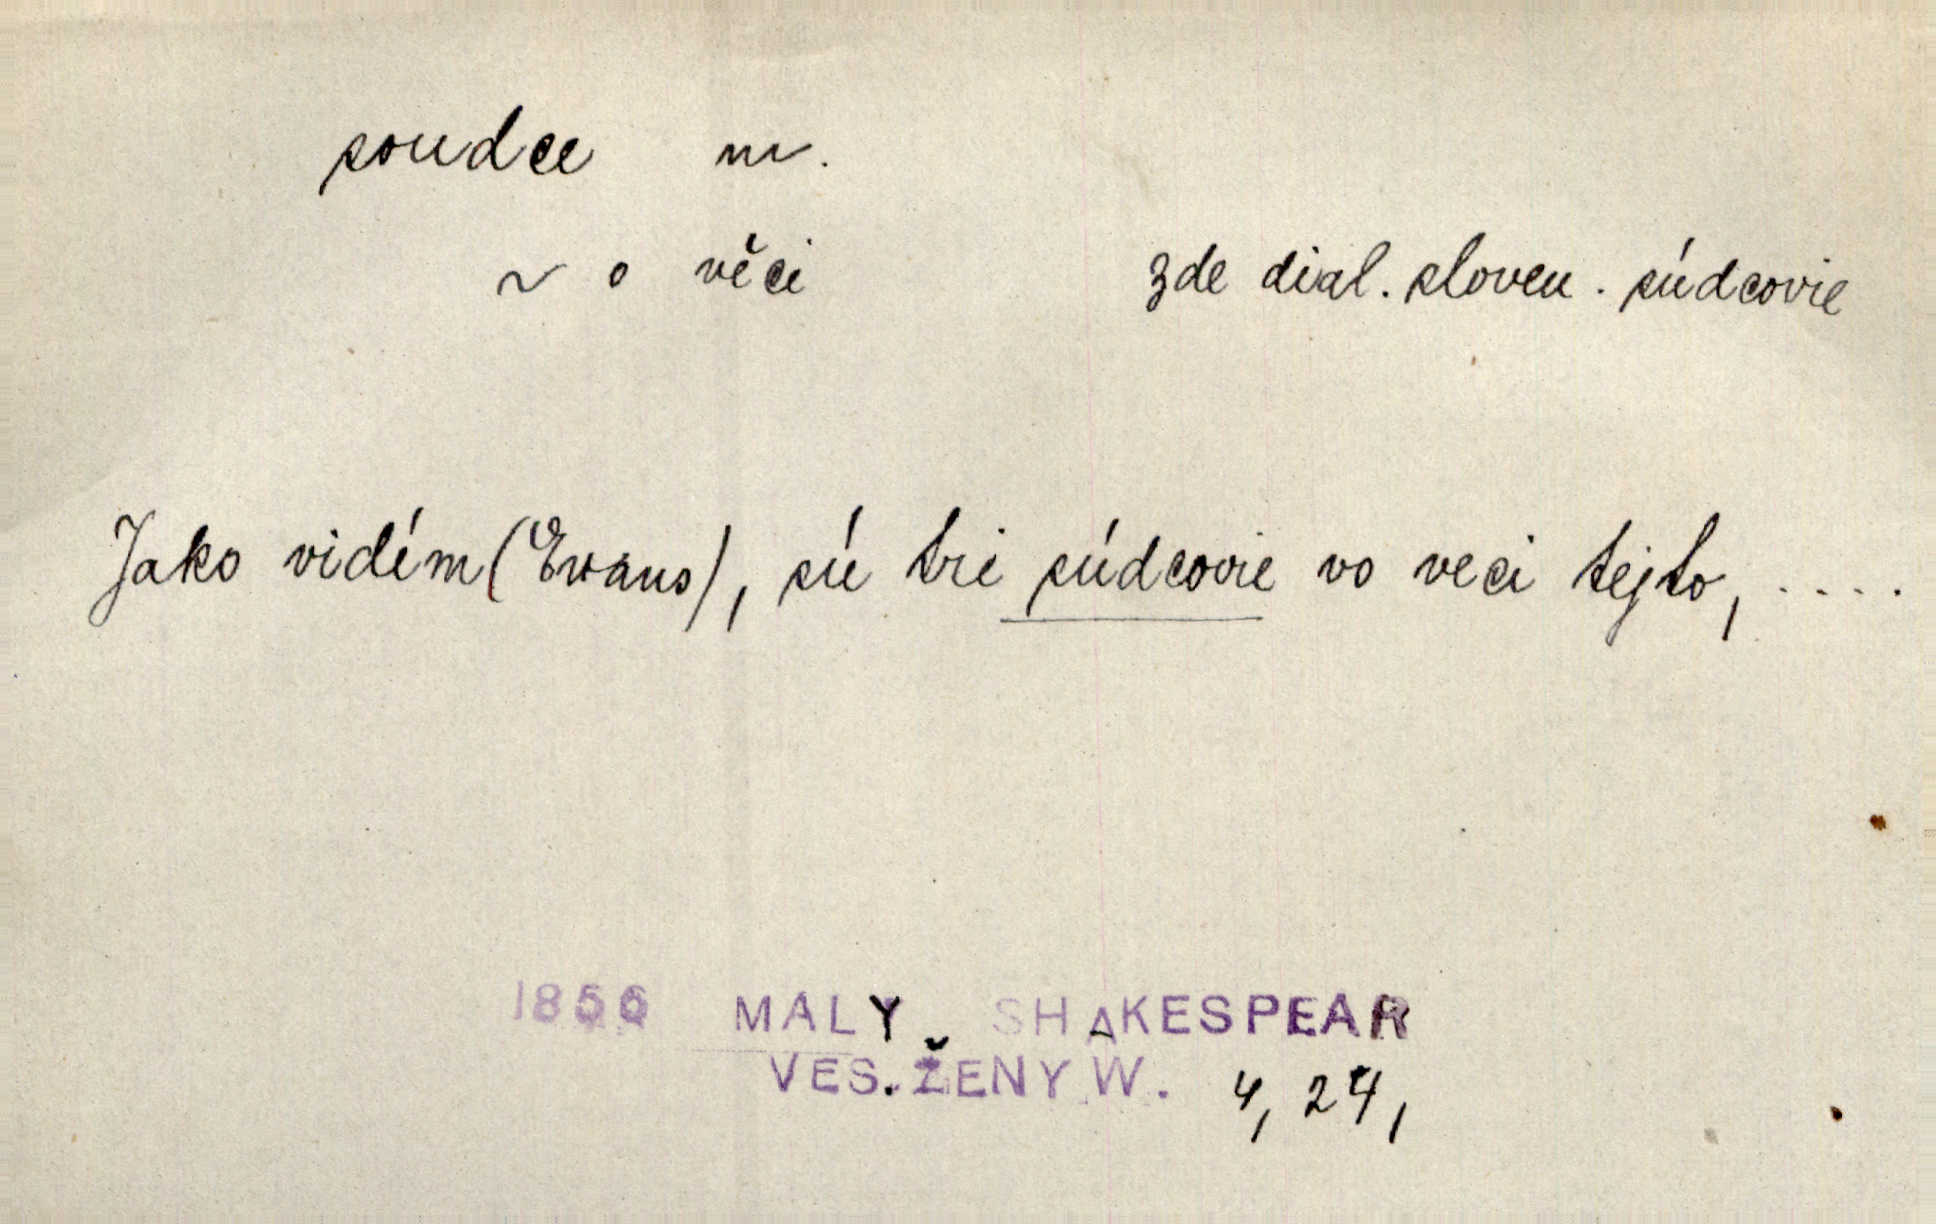 soudce m.
~ o věci zde dial. sloven. súdcovie
Jako vidím (Evans), sú tri súdcovie vo veci tejto, .....
1856 MALY SHAKESPEAR
VES. ŽENY W. 4, 24,